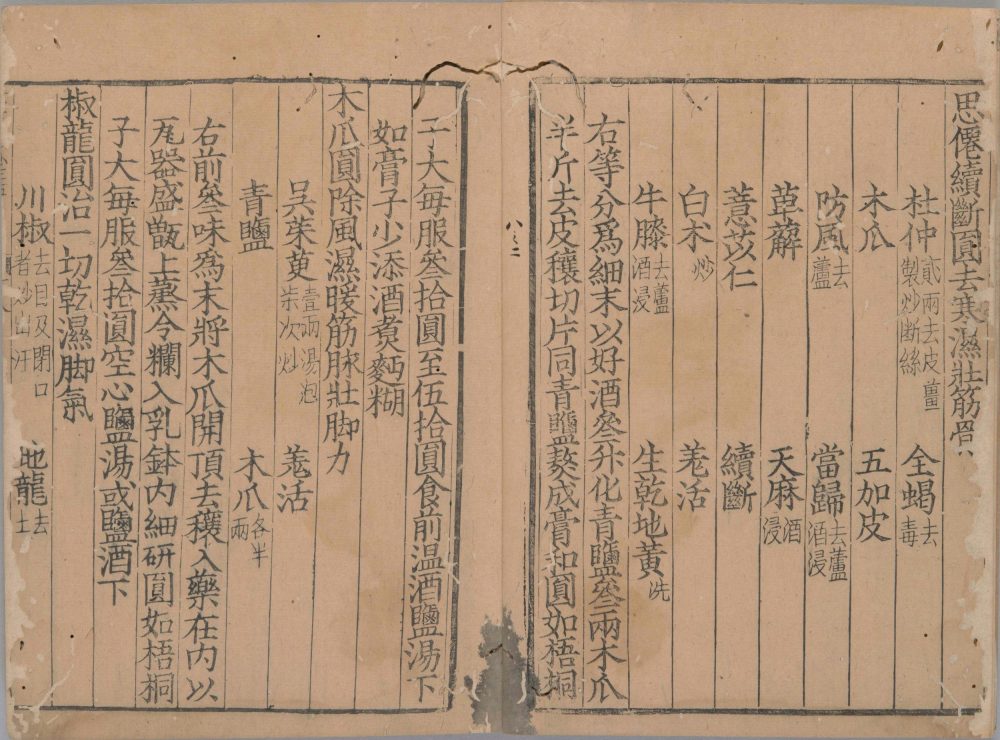 思僊續斷圓去寒濕壯筋骨
杜仲貳兩去皮薑製炒斷絲 全蝎去毒
木瓜 五加皮
防風去蘆 當歸去蘆酒浸
萆薢 天麻酒浸
薏苡仁 續斷
白朮炒 羗活
牛膝去蘆酒浸 生乾地黃洗
右等分爲細末以好酒叄升化青鹽叄兩木瓜
半斤去皮穰切片同青鹽熬成膏和圓如梧桐
子大每服叄拾圓至伍拾圓食前温酒鹽湯下
如膏子少添酒煑麪糊
木瓜圓除風濕暖筋脉壯脚力
吳茱萸壹兩湯泡柒次炒 羗活
青鹽 木瓜各半兩
右前叄味爲末將木瓜開頂去穰入藥在内以
瓦器盛甑上蒸令爛入乳鉢内細研圓如梧桐
子大每服叄拾圓空心鹽湯或鹽酒下
椒龍圓治一切乾濕脚氣
川椒去目及閉口者炒出汗 地龍去土